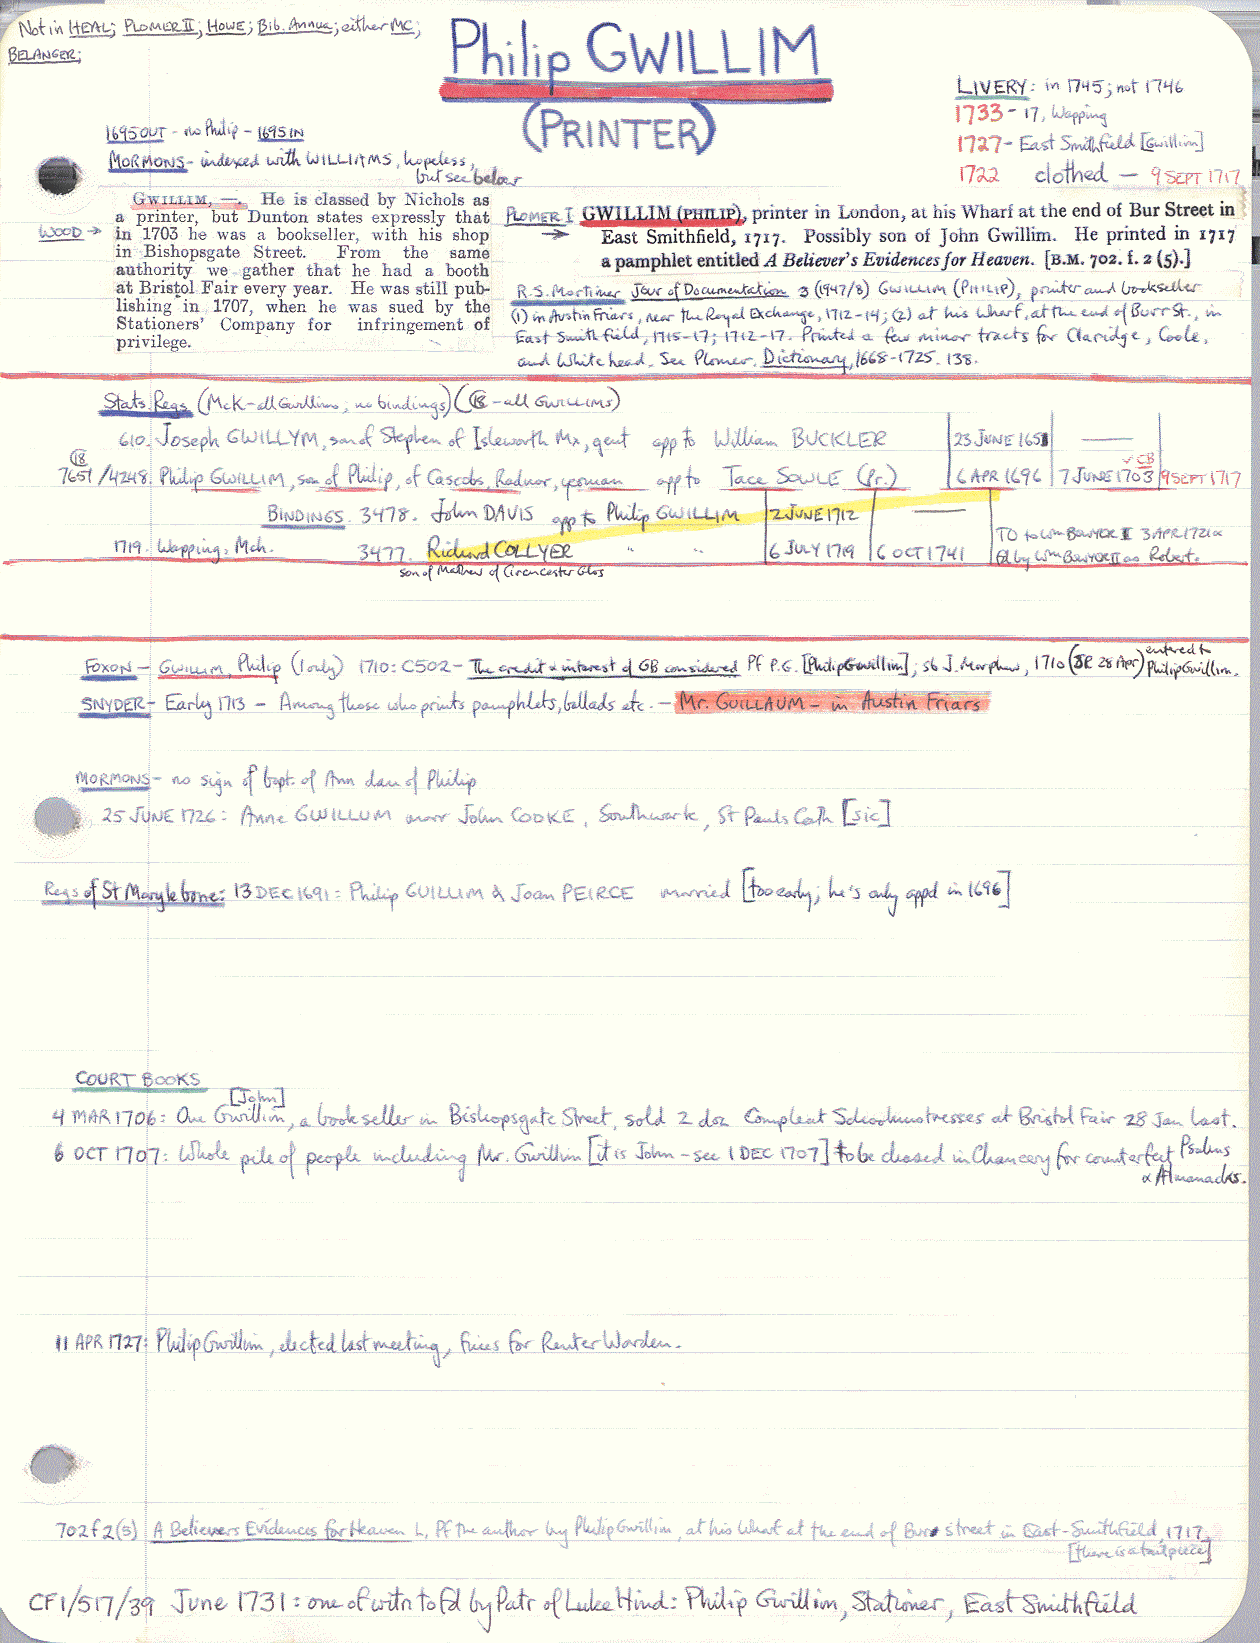 Not in HEAL; PLOMER II; HOWE; Bib. Annua; either MC;
BELANGER;
Philip GWILLIM
(PRINTER)
LIVERY: in 1745; not 1746
1733 - 17, Wapping
1727 - East Smithfield [Gwillim]
1722 clothed - 9 SEPT 1717
1695 OUT - no Philip - 1695 IN
MORMONS - indexed with WILLIAMS, hopeless,
but see below
WOOD →
GWILLIM, —. He is classed by Nichols as
a printer, but Dunton states expressly that
in 1703 he was a bookseller, with his shop
in Bishopsgate Street. From the same
authority we gather that he had a booth
at Bristol Fair every year. He was still pub-
lishing in 1707, when he was sued by the
Stationers' Company for infringement of
privilege.
PLOMER I → GWILLIM (PHILIP), printer in London, at his Wharf at the end of Bur Street in
East Smithfield, 1717. Possibly son of John Gwillim. He printed in 1717
a pamphlet entitled A Believer's Evidences for Heaven. [B.M. 702. f. 2 (5).]
R.S. Mortimer Jour of Documentation 3 (1947/8) GWILLIM (PHILIP), printer and bookseller
(1) in Austin Friars, near the Royal Exchange, 1712-14; (2) at his Wharf, at the end of Burr St., in
East Smithfield, 1715-17; 1712-17. Printed a few minor tracts for Claridge, Coole,
and Whitehead. See Plomer, Dictionary, 1668-1725. 138.
Stats. Regs (McK - all Gwillims; no bindings) (18 - all GWILLIMS)
610. Joseph GWILLYM, son of Stephen of Isleworth Mx, gent app to William BUCKLER 23 JUNE 1651 —
18 7651/4248. Philip GWILLIM, son of Philip, of Cascobs, Radnor, yeoman app to Tace SOWLE (Pr.) 6 APR 1696 7 JUNE 1703 ✓CB 9 SEPT 1717
BINDINGS. 3478. John DAVIS app to Philip GWILLIM 2 JUNE 1712 —
1719. Wapping, Mch. 3477. Richard COLLYER " " 6 JULY 1719 6 OCT 1741 TO to Wm BOWYER I 3 APR 1721 &
fd by Wm BOWYER II as Robert.
son of Mathew of Cirencester Glos
FOXON - GWILLIM, Philip (1 only) 1710: C502 - The credit & interest of GB considered Pf P.G. [Philip Gwillim]; sb J. Morphew, 1710 (SR 28 Apr) entered to
Philip Gwillim.
SNYDER - Early 1713 - Among those who prints pamphlets, ballads etc. - Mr. GUILLAUM - in Austin Friars
MORMONS - no sign of bapt. of Ann dau of Philip
25 JUNE 1726: Anne GWILLUM marr John COOKE, Southwark, St Pauls Cath [sic]
Regs of St Marylebone: 13 DEC 1691: Philip GUILLIM & Joan PEIRCE married [too early; he's only appd in 1696]
COURT BOOKS
[John]
4 MAR 1706: One Gwillim, a bookseller in Bishopsgate Street, sold 2 doz Compleat Schoolmistresses at Bristol Fair 28 Jan last.
6 OCT 1707: Whole pile of people including Mr. Gwillim [it is John - see 1 DEC 1707] to be chased in Chancery for counterfeit Psalms
& Almanacks.
11 APR 1727: Philip Gwillim, elected last meeting, fines for Renter Warden.
702 f 2 (5) A Believers Evidences for Heaven L, Pf the author by Philip Gwillim, at his Wharf at the end of Bur street in East-Smithfield, 1717.
[there is a tailpiece]
CF1/517/39 June 1731: one of witn to fd by Patr of Luke Hind: Philip Gwillim, Stationer, East Smithfield